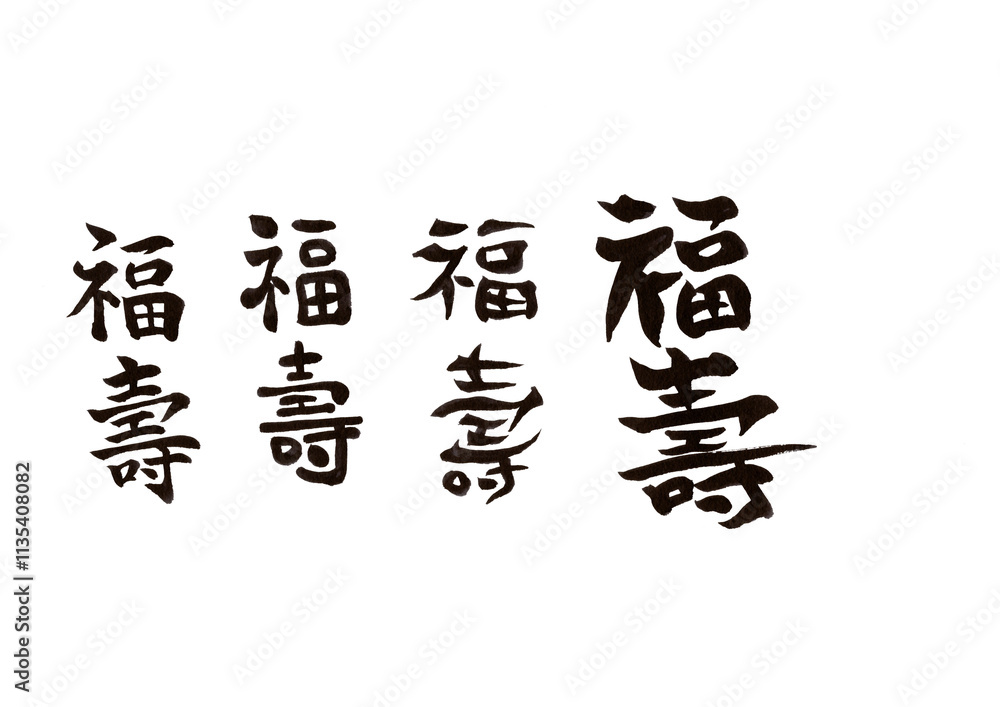 福壽
福壽
福壽
福壽
Adobe Stock | #1135408082